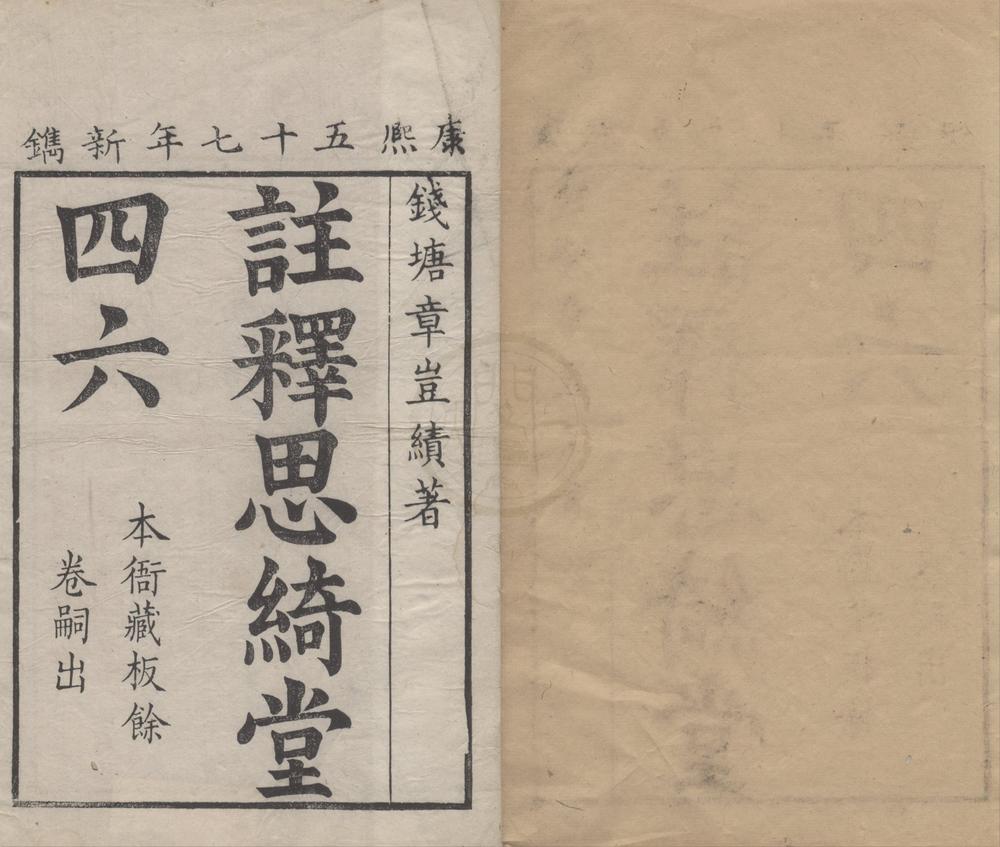 康熈五十七年新鐫
錢塘章豈績著
註釋思綺堂
四六
本衙藏板餘
卷嗣出